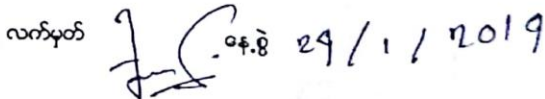 လက်မှတ် နေ့စွဲ 29/1/2019